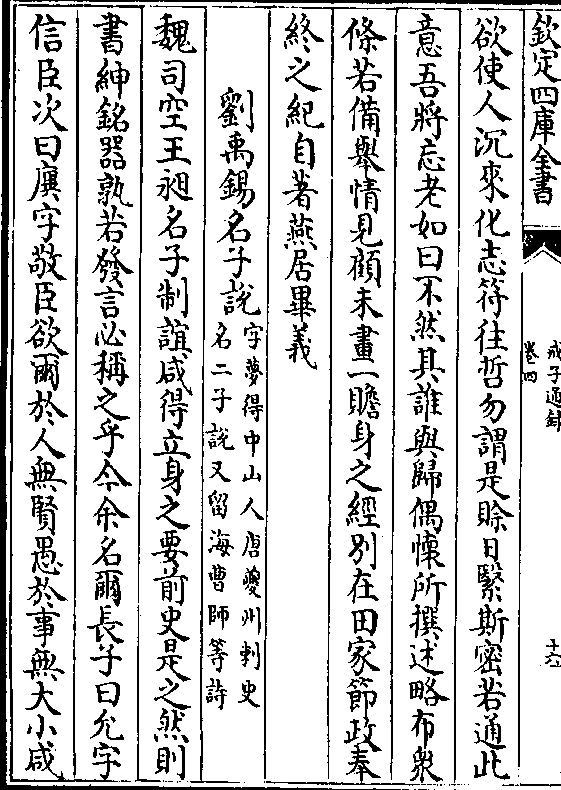 欽定四庫全書
戒子通録
卷四
十六
欲使人沉來化志符往哲勿謂是賒日緊斯密若通此
意吾將忘老如曰不然其誰與歸偶懷所撰述略布衆
條若備舉情見顧未書一贍身之經别在田家節政奉
終之紀自著燕居畢義
劉禹錫名子說
字夢得中山人唐夔州刺史
名二子說又留海曹師等詩
魏司空王昶名子制誼咸得立身之要前史是之然則
書紳銘器孰若發言必稱之乎今余名爾長子曰允字
信臣次曰廙字敬臣欲爾於人無賢愚於事無大小咸